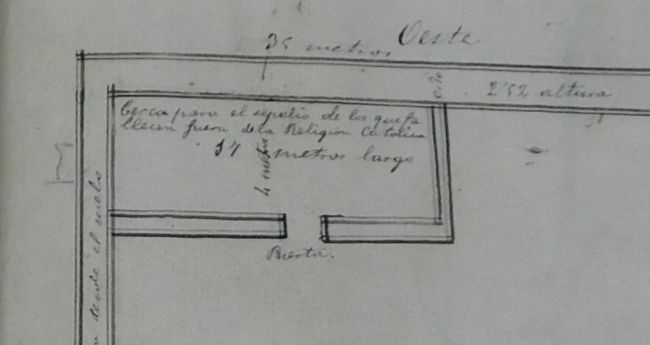 metros Oeste
2'52 altura
Cerca para el sepelio de los que fa
llecen fuera de la Religion Catolica
17 metros largo
4 metros
Puerta.
desde el suelo